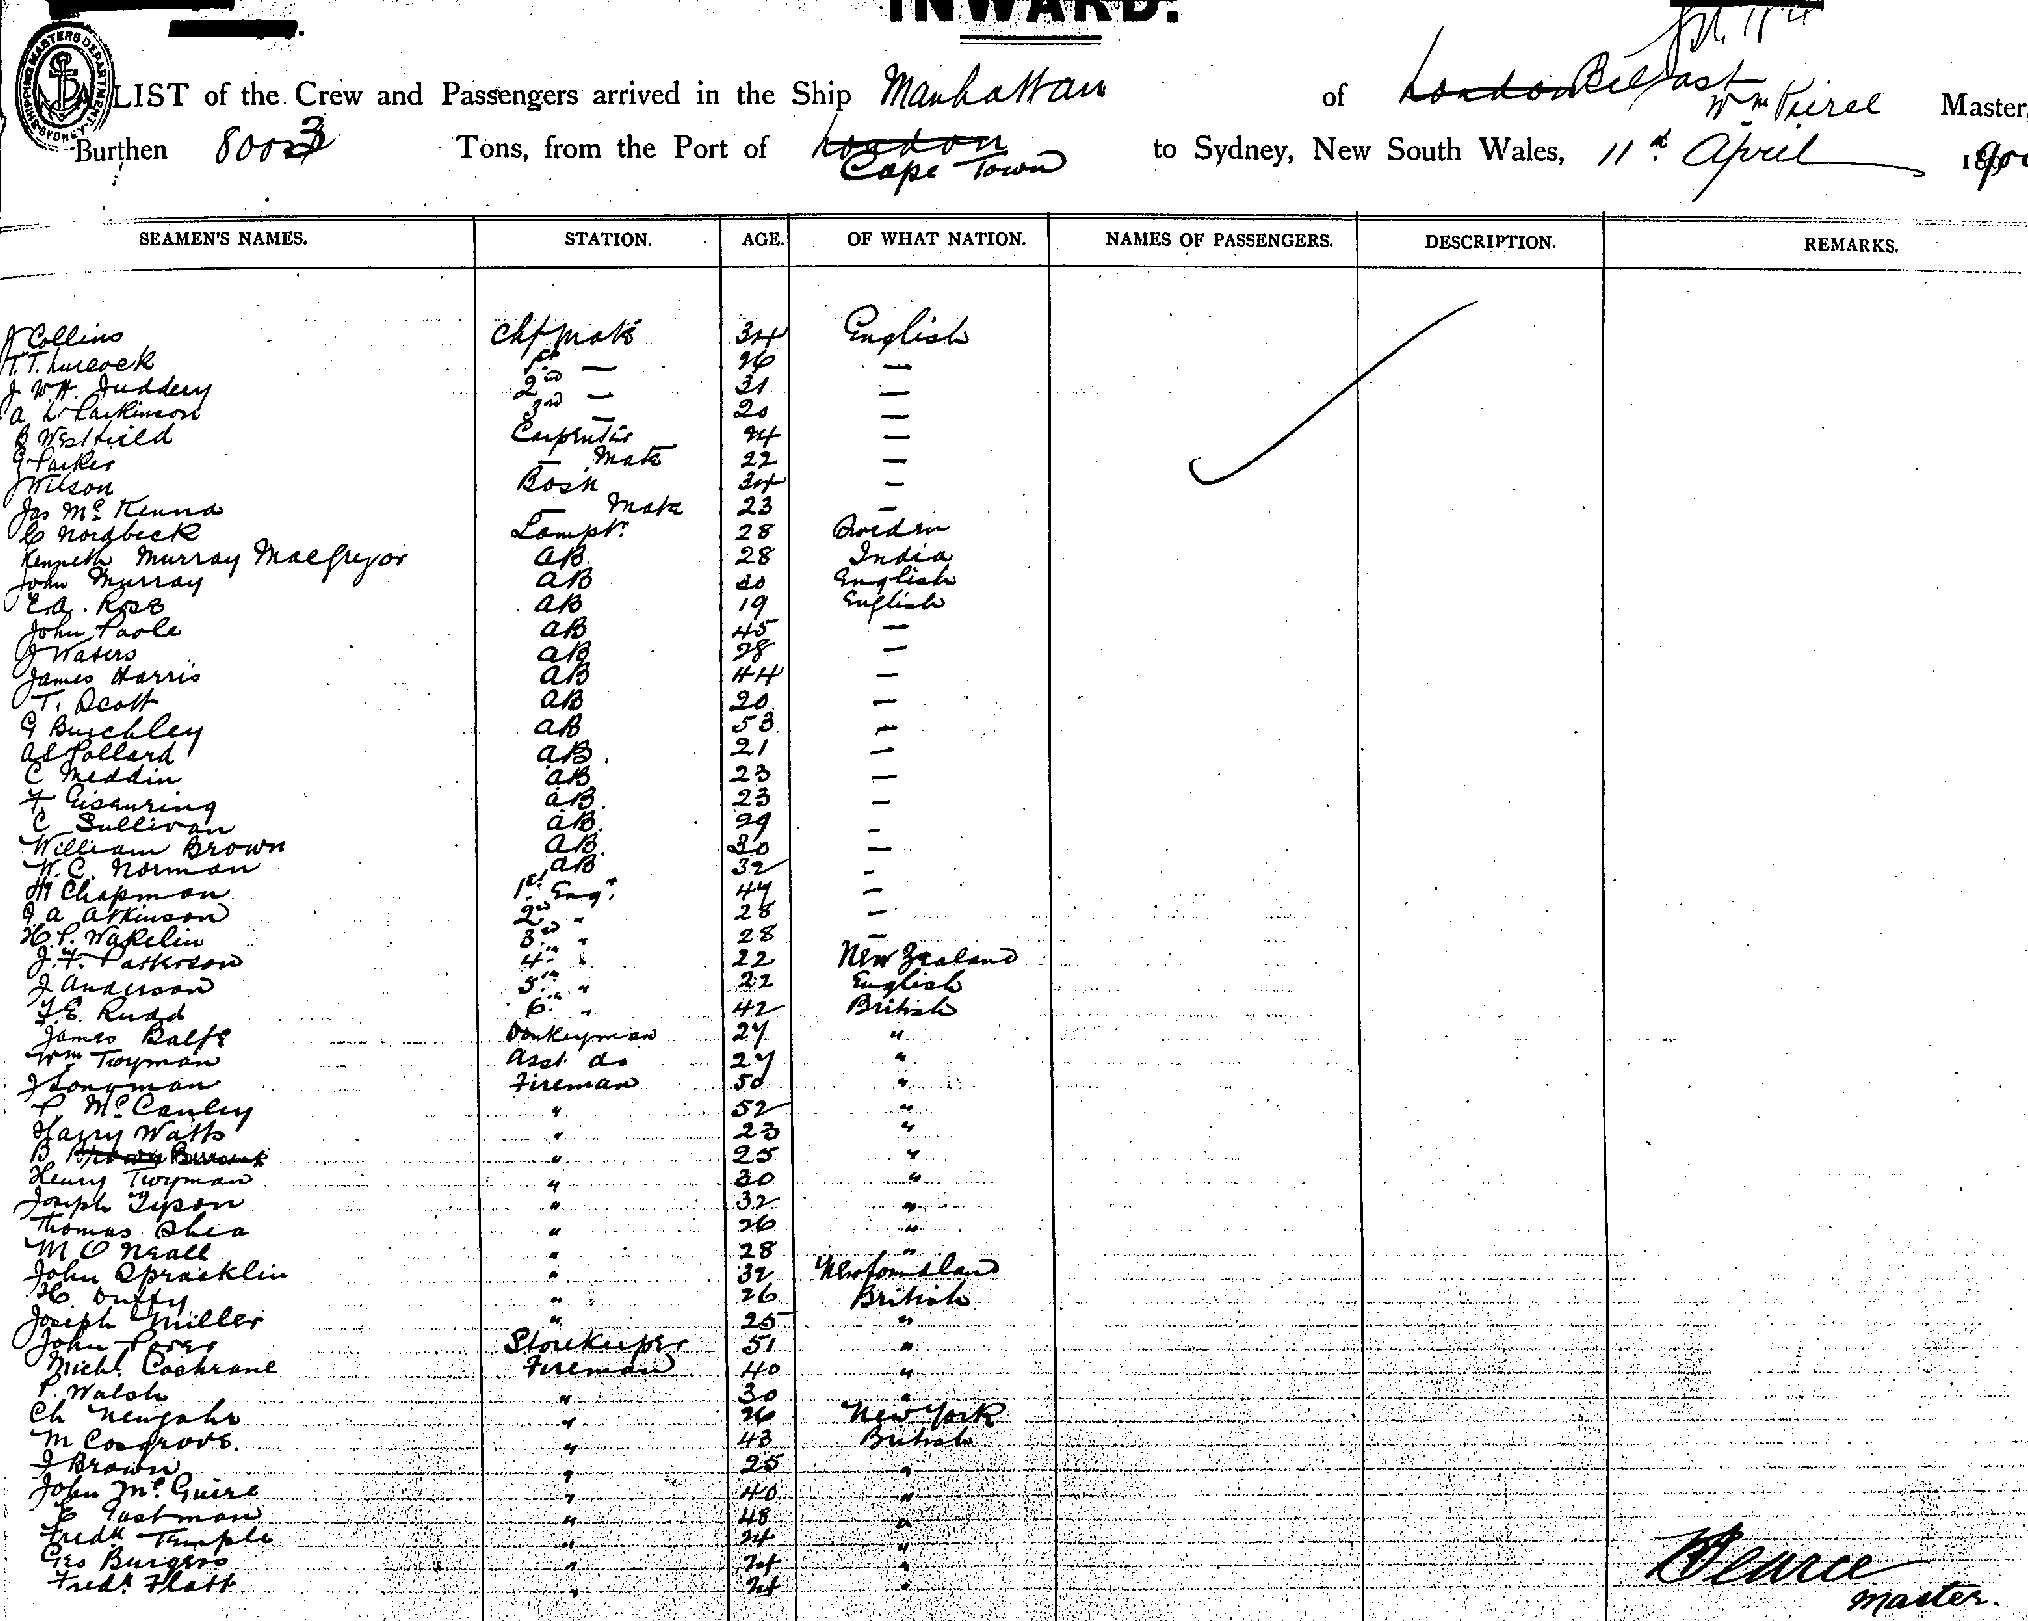 INWARD.
SHIPPING MASTERS DEPARTMENT SYDNEY
A LIST of the Crew and Passengers arrived in the Ship Manhattan of London Belfast Wm Pierce Master,
Burthen 8003 Tons, from the Port of London Cape Town to Sydney, New South Wales, 11th April 1900
SEAMEN'S NAMES. STATION. AGE. OF WHAT NATION. NAMES OF PASSENGERS. DESCRIPTION. REMARKS.
J Collins Chf Mate 34 English
T. Luccock 1st — 26 —
J W.H. Juddery 2nd — 31 —
A W Parkinson 3rd — 20 —
B Westfield Carpenter 24 —
G Parker — Mate 22 —
J Wilson Bosn 34 —
Jas McKenna — Mate 23 —
C Nordbeck Lampr. 28 Sweden
Kenneth Murray MacGregor AB 28 India
John Murray AB 20 English
E.A. Rose AB 19 English
John Poole AB 45 —
J Waters AB 28 —
James Harris AB 44 —
T. Scott AB 20 —
G Burchley AB 53 —
Al Pollard AB. 21 —
C Meddin AB 23 —
F. AB. 23 —
C Sullivan AB. 29 —
William Brown AB. 30 —
W.C. Norman AB 32 -
H Chapman 1st Engr. 47 —
J A Atkinson 2nd " 28 —
H.P. Wakelin 3rd " 28 —
J.F. Patterson 4th " 22 New Zealand
J Anderson 5th " 22 English
F.E. Rudd 6th " 42 British
James Balfe Donkeyman 27 "
Wm Twyman Asst do 27 "
J Longman Fireman 50 "
P McCauley " 52 "
Harry Watts " 23 "
B. " 25 "
Henry Twyman " 30 "
Joseph Tyson " 32 "
Thomas Shea " 26 "
M O Neall " 28 "
John Spracklin " 32 Newfoundland
H. Duffy " 26 British
Joseph Miller " 25 "
John Power Storekeeper 51 "
Michl. Cochrane Fireman 40 "
P. Walsh " 30 "
Ch Neujahr " 26 New York
M Cosgrove. " 43 British
J Brown " 25 "
John McGuire " 40 "
E Eastman " 48 "
Fredk Temple " 24 "
Geo Burgess " 24 "
Fredk. Flatt " 24 "
Pearce
Master.